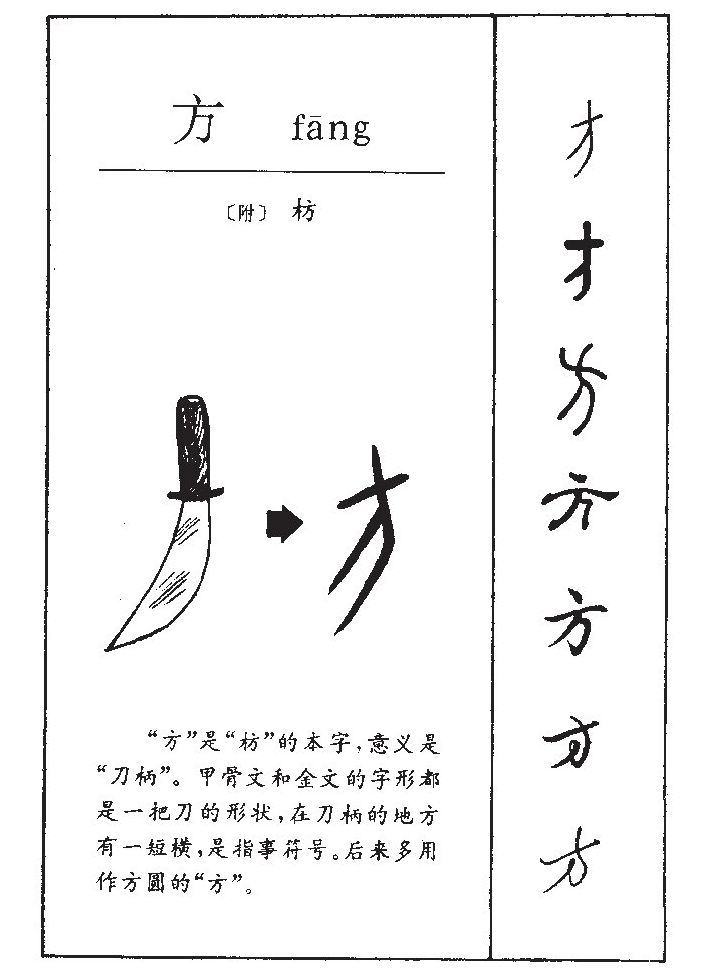 方 fāng
〔附〕 枋
“方”是“枋”的本字，意义是
“刀柄”。甲骨文和金文的字形都
是一把刀的形状，在刀柄的地方
有一短横，是指事符号。后来多用
作方圆的“方”。
方
方
方
方
方
方
方